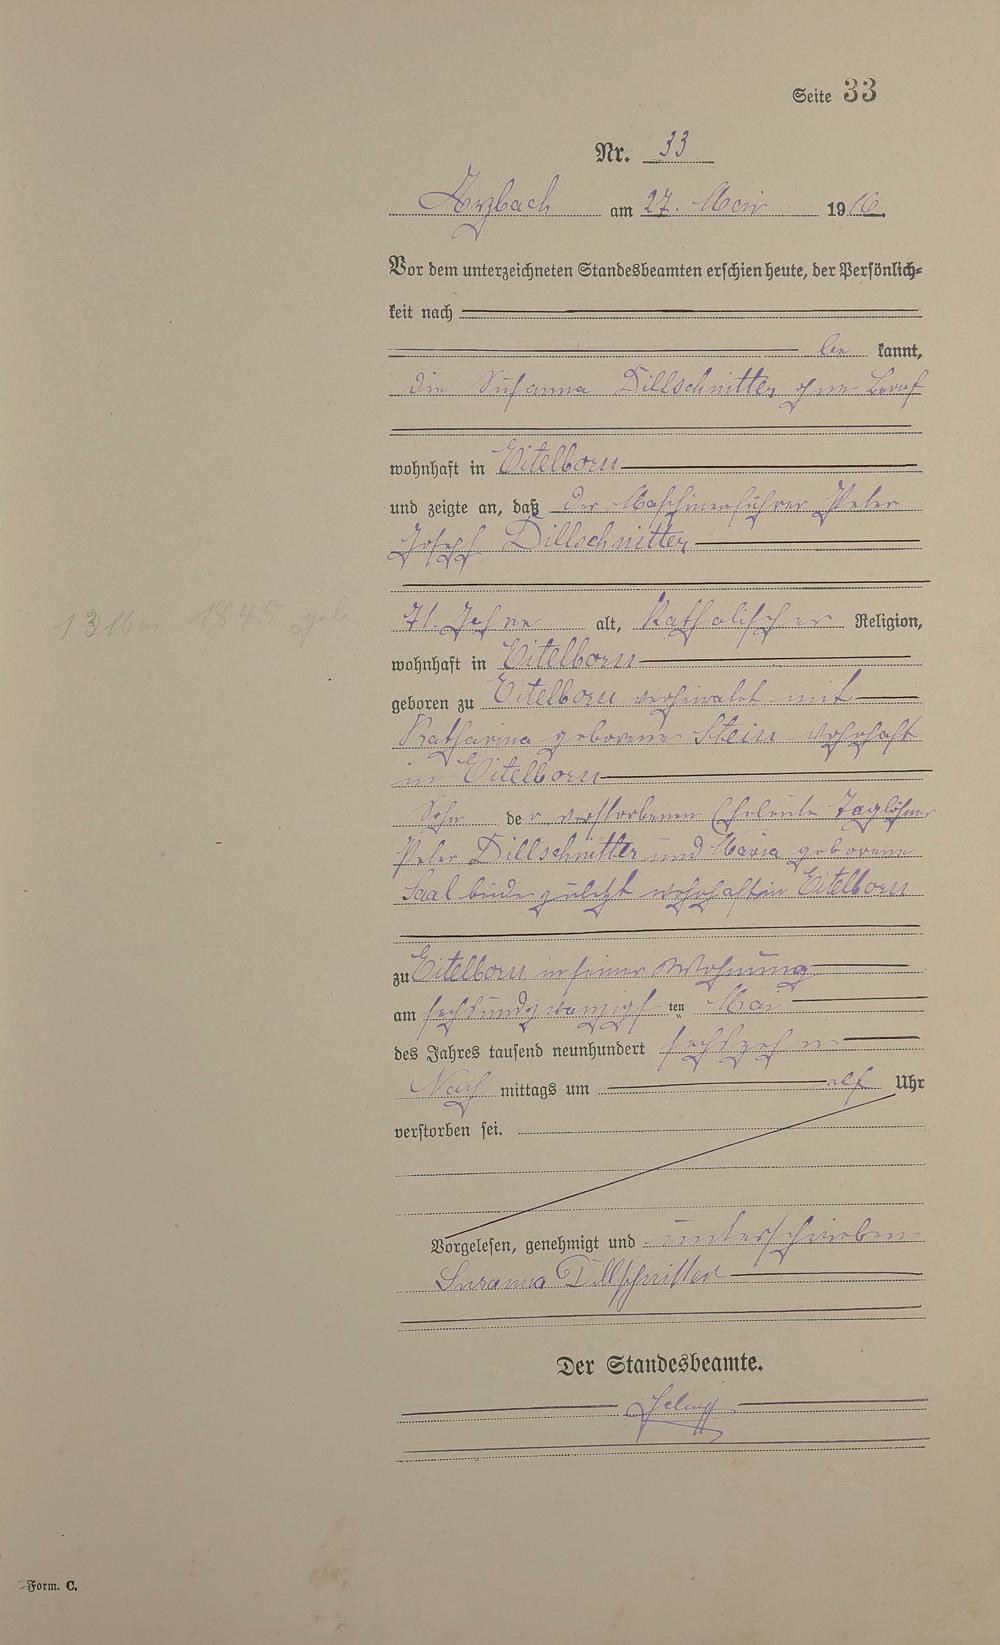 Seite 33
Nr. 33
Arzbach am 27. Mai 1916.
Vor dem unterzeichneten Standesbeamten erschien heute, der Persönlich-
keit nach
be kannt,
die Susanna Dillschnitter ohne Beruf
wohnhaft in Eitelborn
und zeigte an, daß der Maschinenführer Peter
Joseph Dillschnitter
13 Mai 1845 geb
71. Jahre alt, Katholischer Religion,
wohnhaft in Eitelborn
geboren zu Eitelborn verheiratet mit
Katharina geborene Stein wohnhaft
in Eitelborn
Sohn der verstorbenen Eheleute Taglöhner
Peter Dillschnitter und Maria geborene
Saal beide zuletzt wohnhaft in Eitelborn
zu Eitelborn, in seiner Wohnung
am sechsundzwanzigsten Mai
des Jahres tausend neunhundert sechszehn
Nach mittags um elf Uhr
verstorben sei.
Vorgelesen, genehmigt und unterschrieben
Susanna Dillschnitter
Der Standesbeamte.
Form. C.